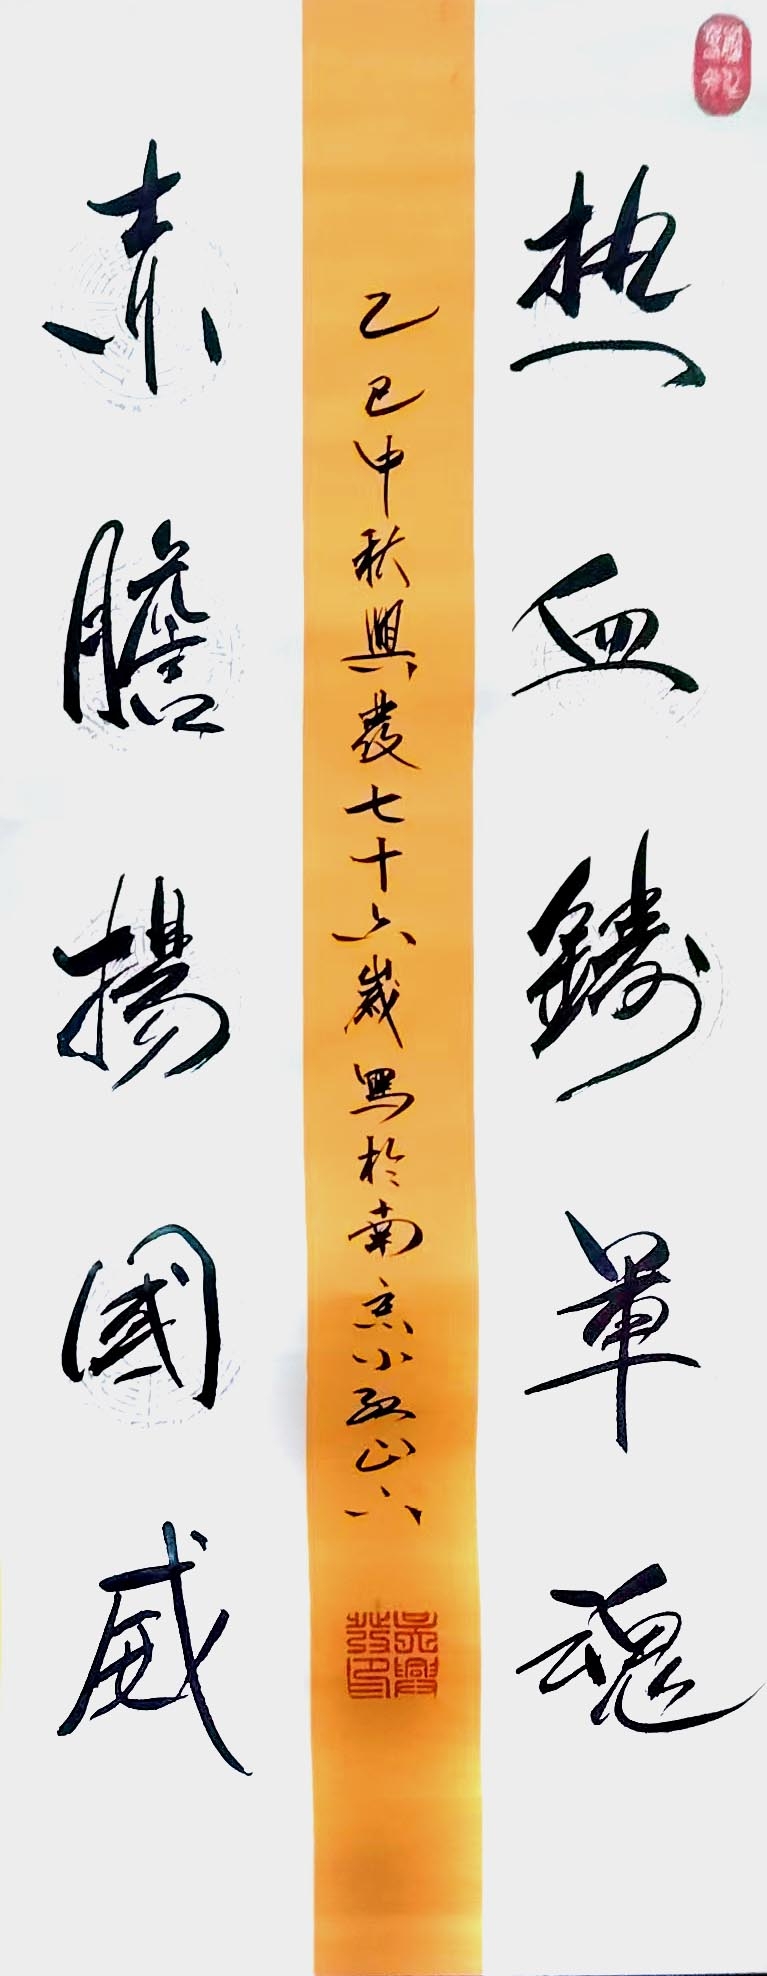 热血鑄軍魂
赤膽揚國威
乙巳中秋興發七十六歲寫於南京小紅山
吳興發印